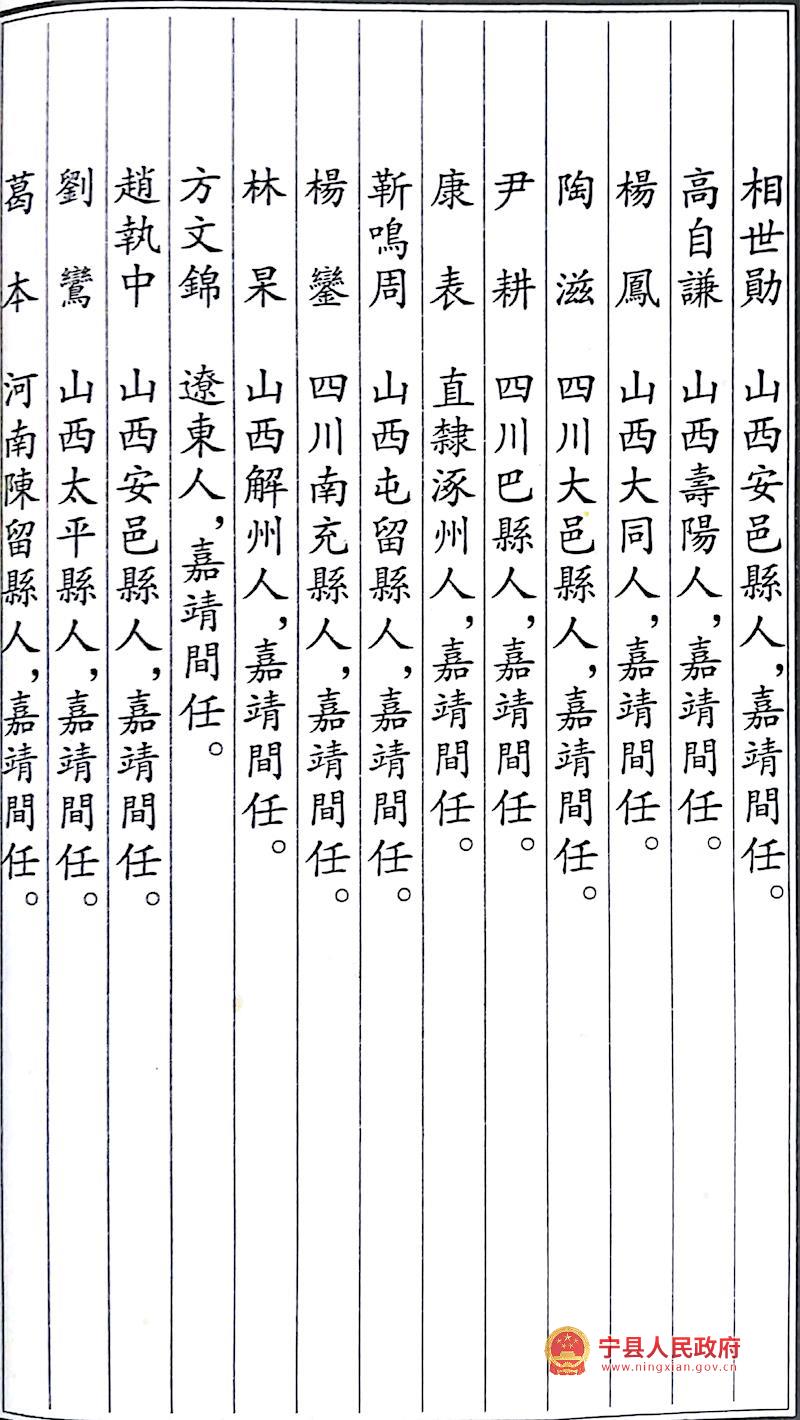 相世勛　山西安邑縣人，嘉靖間任。
高自謙　山西壽陽人，嘉靖間任。
楊　鳳　山西大同人，嘉靖間任。
陶　滋　四川大邑縣人，嘉靖間任。
尹　耕　四川巴縣人，嘉靖間任。
康　表　直隸涿州人，嘉靖間任。
靳鳴周　山西屯留縣人，嘉靖間任。
楊　鑾　四川南充縣人，嘉靖間任。
林　杲　山西解州人，嘉靖間任。
方文錦　遼東人，嘉靖間任。
趙執中　山西安邑縣人，嘉靖間任。
劉　鸞　山西太平縣人，嘉靖間任。
葛　本　河南陳留縣人，嘉靖間任。
宁县人民政府
www.ningxian.gov.cn